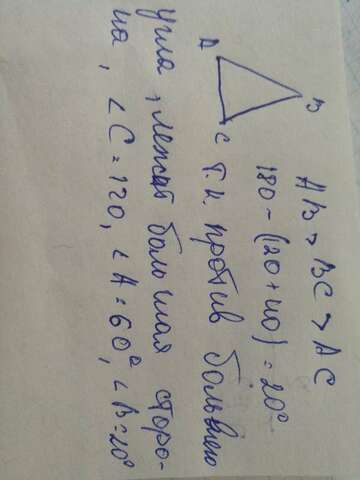 A
B
C
AB > BC > AC
180 - (120 + 40) = 20°
т.к. против большего
угла, лежит большая сторо-
на, ∠C = 120, ∠A = 60°, ∠B = 20°